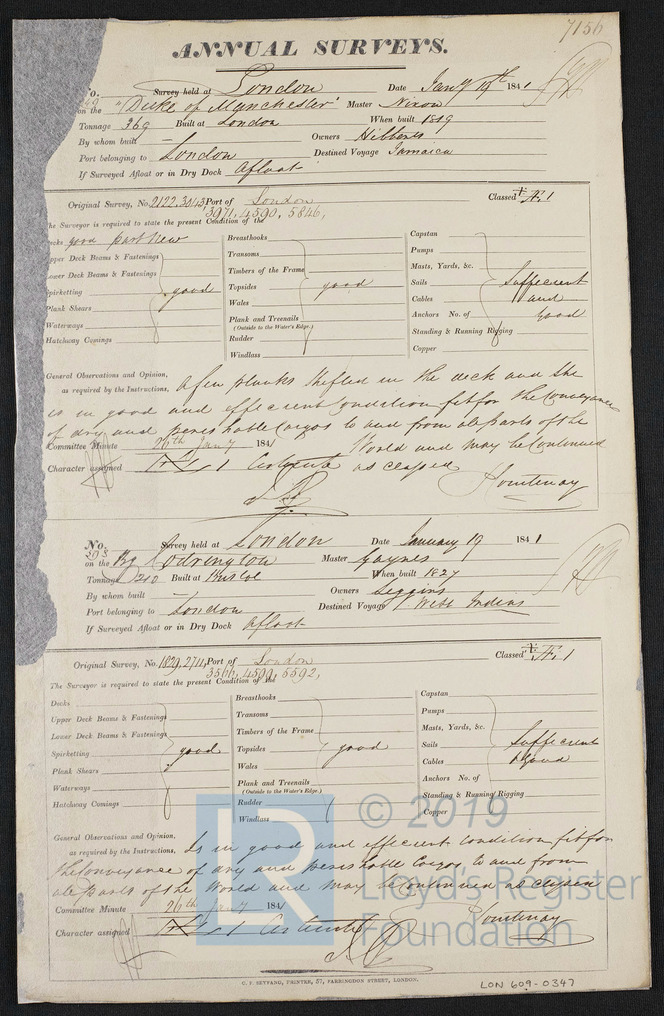 7156
ANNUAL SURVEYS.
No. Survey held at London Date Jany 19th 1841
on the "Duke of Manchester" Master Nixon
Tonnage 369 Built at London When built 1819
By whom built — Owners Hibberts
Port belonging to London Destined Voyage Jamaica
If Surveyed Afloat or in Dry Dock Afloat
Original Survey, No. 2122, 3043, Port of London Classed Æ 1
3971, 4590, 5846,
The Surveyor is required to state the present Condition of the
Decks good part New
Upper Deck Beams & Fastenings
Lower Deck Beams & Fastenings
Spirketting good
Plank Shears
Waterways
Hatchway Comings
Breasthooks
Transoms
Timbers of the Frame
Topsides good
Wales
Plank and Treenails
(Outside to the Water's Edge.)
Rudder
Windlass
Capstan
Pumps
Masts, Yards, &c.
Sails Sufficient
Cables and
Anchors No. of Good
Standing & Running Rigging
Copper
General Observations and Opinion, as required by the Instructions, A few planks shifted in the deck and she
is in good and efficient Condition fit for the Conveyance
of dry and perishable Cargos to and from all parts of the
Committee Minute 26th Jany 1841 World and may be Continued
Character assigned Æ 1 as classed
Courtenay
No. Survey held at London Date January 19 1841
on the Bg Codrington Master Gaynes
Tonnage 210 Built at Bristol When built 1827
By whom built — Owners Seggins
Port belonging to London Destined Voyage West Indies
If Surveyed Afloat or in Dry Dock Afloat
Original Survey, No. 1829, 2711, Port of London Classed Æ 1
3566, 4599, 5592,
The Surveyor is required to state the present Condition of the
Decks
Upper Deck Beams & Fastenings
Lower Deck Beams & Fastenings
Spirketting good
Plank Shears
Waterways
Hatchway Comings
Breasthooks
Transoms
Timbers of the Frame
Topsides good
Wales
Plank and Treenails
(Outside to the Water's Edge.)
Rudder
Windlass
Capstan
Pumps
Masts, Yards, &c.
Sails Sufficient
Cables Good
Anchors No. of
Standing & Running Rigging
Copper
General Observations and Opinion, as required by the Instructions, Is in good and efficient Condition fit for
the Conveyance of dry and perishable Cargos to and from
all parts of the World and may be Continued as classed
Committee Minute 26th Jany 1841
Character assigned Æ 1 Courtenay
C. F. SEYFANG, PRINTER, 57, FARRINGDON STREET, LONDON.
LON 609-0347
LR © 2019
Lloyd's Register
Foundation